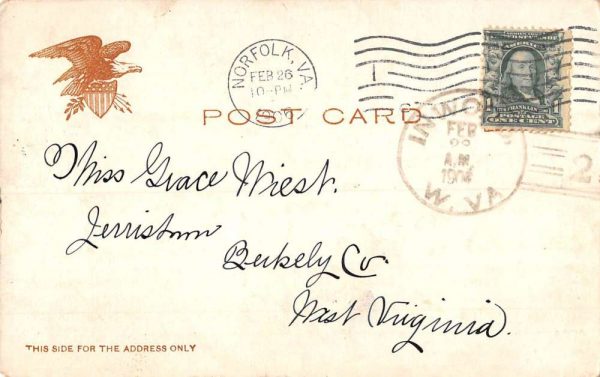 NORFOLK, VA.
FEB 26
10-PM
POST CARD
INWOOD
FEB
A.M.
W. VA
2
FRANKLIN
POSTAGE
ONE CENT
Miss Grace Wiest.
Jerristown
Berkely Co.
West Virginia.
THIS SIDE FOR THE ADDRESS ONLY